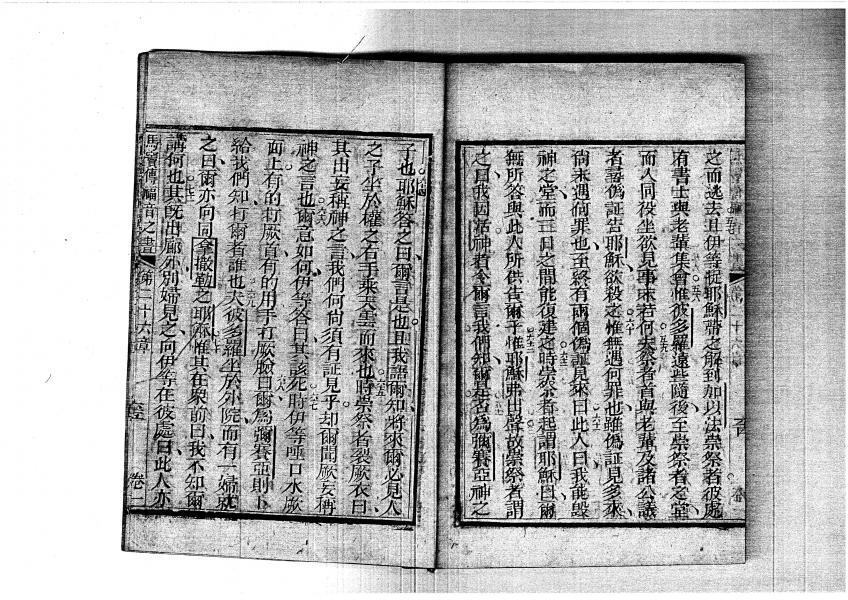 之而逃去且伊等捉耶穌帶之解到加以法崇祭者彼處
有書士與老輩集會惟彼多羅遠些隨後至崇祭者之堂
而入同役坐欲見事末若何夫祭者首與老輩及諸公議
者謀偽証告耶穌欲殺之惟無遇何罪也雖偽証見多來
尚未遇個罪也至終有兩個偽証見來曰此人曰我能毀
神之堂而三日之間能復建之時崇祭者起謂耶穌曰爾
無所答與此人所供告爾乎惟耶穌弗出聲故崇祭者謂
之曰我因活神者令爾言我們知爾是否為彌賽亞神之
子也耶穌答之曰爾言是也且我語爾知將來爾必見人
之子坐於權之右手乘天雲而來也時崇祭者裂厥衣曰
其出妄稱神之言我們何尚須有証見乎却爾聞厥妄稱
神之言也爾意如何伊等答曰其該死時伊等唾口水厥
面上有的打厥首有的用手打厥臉曰爾為彌賽亞則卜
給我們知打爾者誰也夫彼多羅坐於外院而有一婦就
之曰爾亦向同拿撒勒之耶穌惟其在眾前曰我不知爾
講何也其既出廊外別婦見之向伊等在彼處曰此人亦
馬竇傳福音之書 第二十六章 卷二